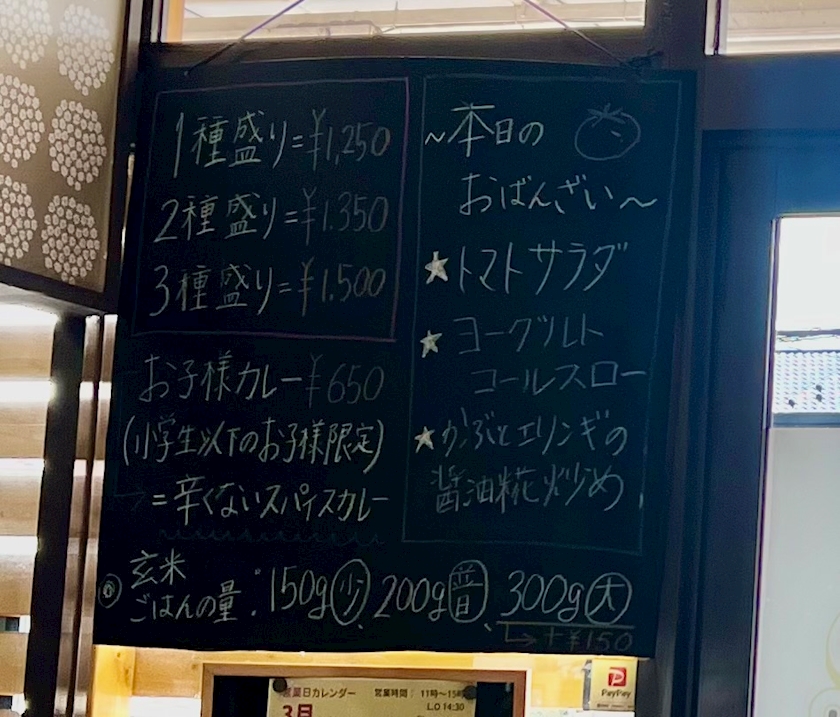 1種盛り=¥1,250
2種盛り=¥1.350
3種盛り=¥1.500
お子様カレー¥650
(小学生以下のお子様限定)
=辛くないスパイスカレー
~本日の
おばんざい~
★トマトサラダ
★ヨーグルト
コールスロー
★かぶとエリンギの
醤油糀炒め
玄米
ごはんの量:150g(少)、200g(普)、300g(大)
→+¥150
営業日カレンダー 営業時間: 11時~15時
L.O 14:30
3月
PayPay